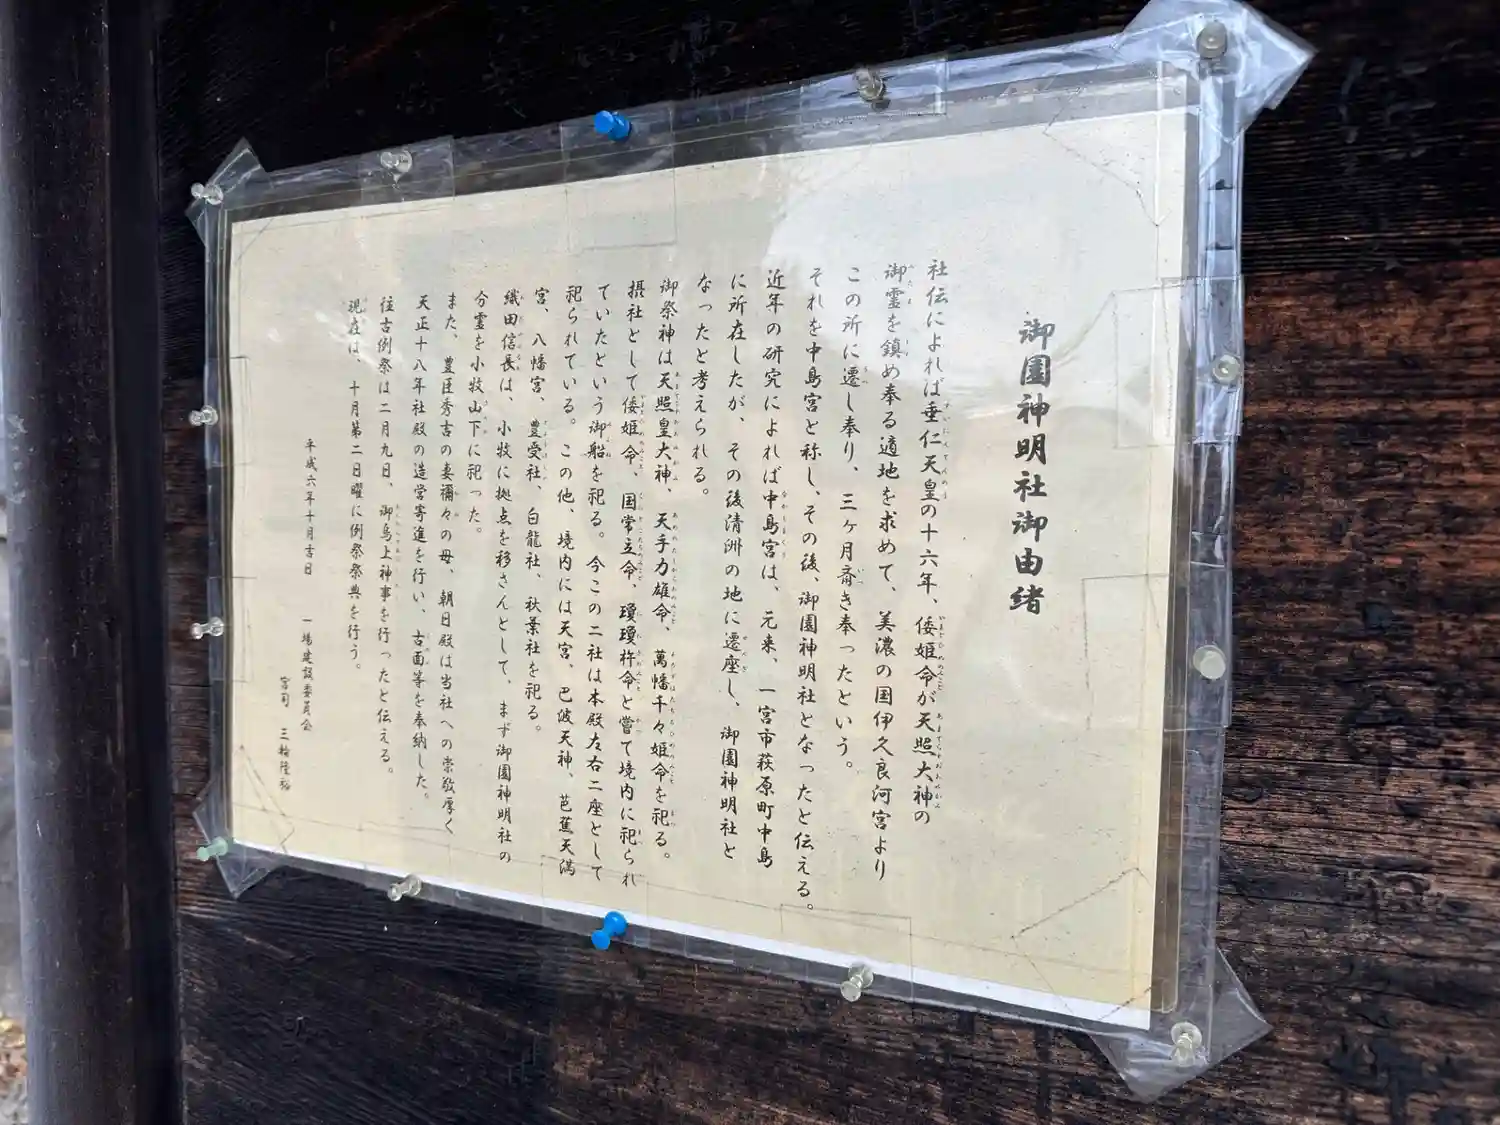 御園神明社御由緒
社伝によれば垂仁天皇の十六年、倭姫命が天照大神の
御霊を鎮め奉る適地を求めて、美濃の国伊久良河宮より
この所に遷し奉り、三ヶ月斎き奉ったという。
それを中島宮と称し、その後、御園神明社となったと伝える。
近年の研究によれば中島宮は、元来、一宮市萩原町中島
に所在したが、その後清洲の地に遷座し、御園神明社と
なったと考えられる。
御祭神は天照皇大神、天手力雄命、萬幡千々姫命を祀る。
摂社として倭姫命、国常立命、瓊瓊杵命と嘗て境内に祀られ
ていたという御船を祀る。今この二社は本殿左右二座として
祀られている。この他、境内には天宮、巴波天神、芭蕉天満
宮、八幡宮、豊受社、白龍社、秋葉社を祀る。
織田信長は、小牧に拠点を移さんとして、まず御園神明社の
分霊を小牧山下に祀った。
また、豊臣秀吉の妻禰々の母、朝日殿は当社への崇敬厚く
天正十八年社殿の造営寄進を行い、古面等を奉納した。
往古例祭は二月九日、御烏上神事を行ったと伝える。
現在は、十月第二日曜に例祭祭典を行う。
平成六年十月吉日
一場建設委員会
宮司 三輪隆裕